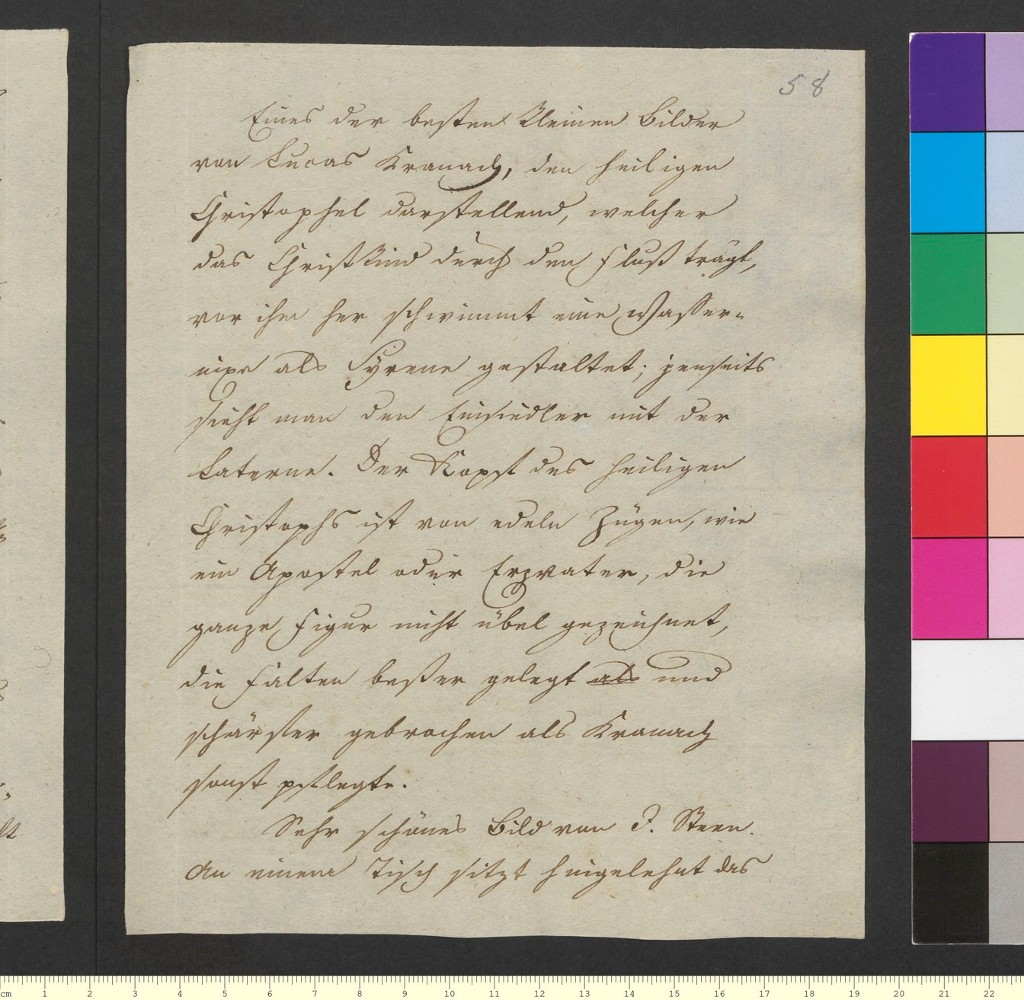 58
Eines der besten kleinen Bilder
von Lucas Kranach, den heiligen
Christophel darstellend, welcher
das Christkind durch den Fluß trägt,
vor ihm her schwimmt eine Wasser-
nixe als Syrene gestaltet; jenseits
sieht man den Einsiedler mit der
Laterne. Der Kopf des heiligen
Christophs ist von edeln Zügen, wie
ein Apostel oder Erzvater, die
ganze Figur nicht übel gezeichnet,
die Falten besser gelegt als und
schärfer gebrochen als Kranach
sonst pflegte.
Sehr schönes Bild von J. Steen.
An einem Tisch sitzt hingelehnt das
cm 1 2 3 4 5 6 7 8 9 10 11 12 13 14 15 16 17 18 19 20 21 22